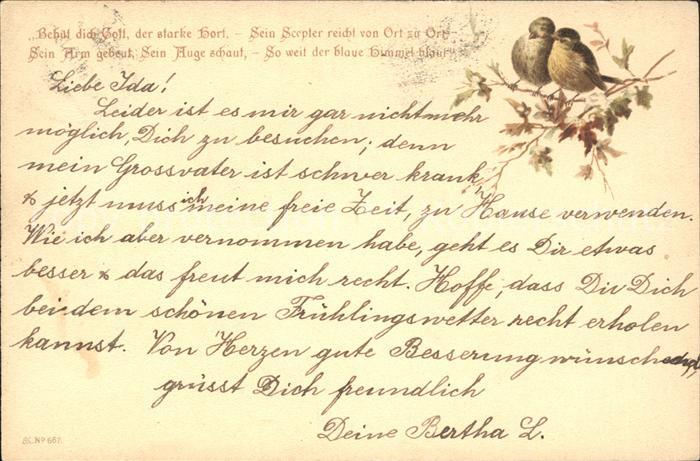 „Behüt dich Gott, der starke Hort, – Sein Scepter reicht von Ort zu Ort,
Sein Arm gebeut, Sein Auge schaut, – So weit der blaue Himmel blaut!“
Liebe Ida!
Leider ist es mir gar nicht mehr
möglich, Dich zu besuchen; denn
mein Grossvater ist schwer krank,
& jetzt muss ich meine freie Zeit, zu Hause verwenden.
Wie ich aber vernommen habe, geht es Dir etwas
besser & das freut mich recht. Hoffe, dass Du Dich
bei dem schönen Frühlingswetter recht erholen
kannst. Von Herzen gute Besserung wünschend,
grüsst Dich freundlich
Deine Bertha L.
No 667.